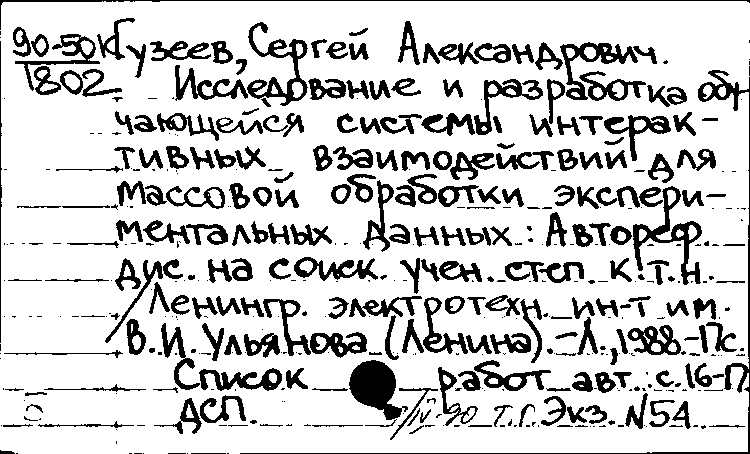 90-501 Гузеев, Сергей Александрович.
1802 Исследование и разработка обу-
чающейся системы интерак-
тивных взаимодействий для
массовой обработки экспери-
ментальных данных: Автореф.
дис. на соиск. учен. степ. к.т.н.
/Ленингр. электротехн. ин-т им.
В.И. Ульянова (Ленина).-Л., 1988.-17с.
Список работ авт.: с.16-17
ДСП. /IV-90 т.г. Экз. N54